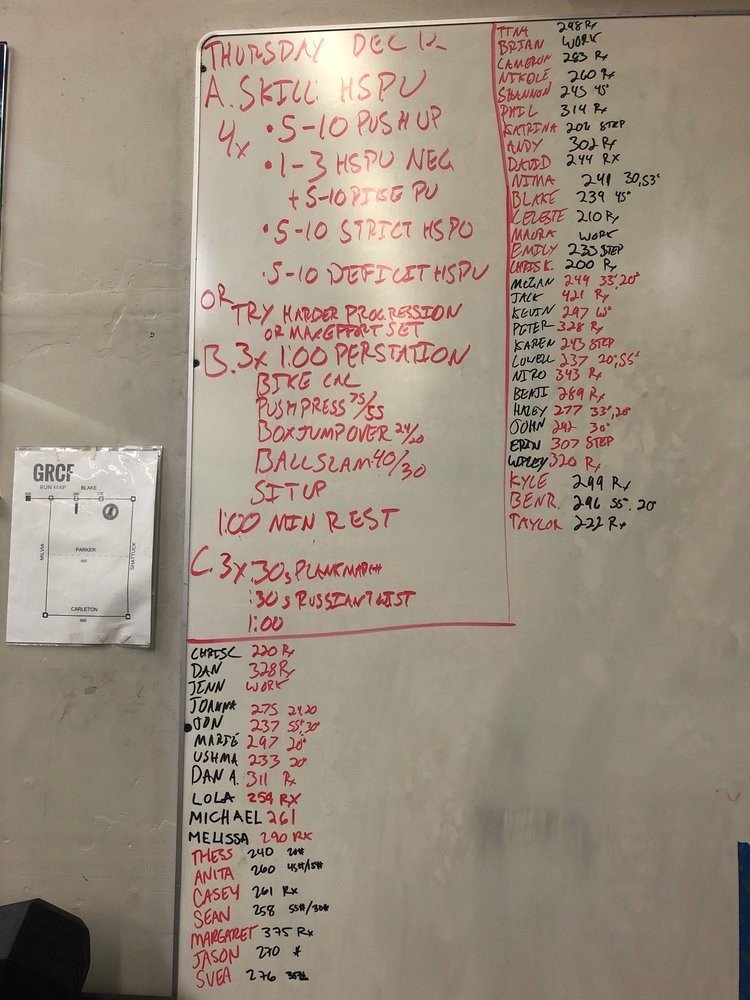 THURSDAY DEC 12
A. SKILL: HSPU
4x • 5-10 PUSH UP
• 1-3 HSPU NEG
+ 5-10 PIKE PU
• 5-10 STRICT HSPU
• 5-10 DEFICIT HSPU
OR TRY HARDER PROGRESSION
OR MAX EFFORT SET
B. 3x 1:00 PER STATION
BIKE CAL
PUSH PRESS 75/55
BOX JUMP OVER 24/20
BALL SLAM 40/30
SIT UP
1:00 MIN REST
C. 3x :30s PLANK MARCH
:30s RUSSIAN TWIST
1:00
TINA 298 Rx
BRIAN WORK
CAMERON 283 Rx
NIKOLE 260 Rx
SHANNON 245 45#
PHIL 314 Rx
KATRINA 206 STEP
ANDY 302 Rx
DAVID 244 RX
NIMA 241 30, 53#
BLAKE 239 45#
CELESTE 210 Rx
MAURA WORK
EMILY 233 STEP
CHRIS K. 200 Rx
MEGAN 249 33#, 20#
JACK 421 Rx
KEVIN 297
PETER 328 Rx
KAREN 243 STEP
LOWELL 237 20, 55#
NIRO 343 Rx
BENJI 289 Rx
HALEY 277 33#, 20#
JOHN 292 30#
ERIN 307 STEP
320 Rx
KYLE 299 Rx
BEN R. 296 55#, 20"
TAYLOR 222 Rx
CHRIS C 220 Rx
DAN 328 Rx
JENN WORK
JOANNA 275 24, 20
JON 237 55#, 30#
MARIE 297 20#
USHMA 233 20#
DAN A. 311 Rx
LOLA 254 RX
MICHAEL 261
MELISSA 290 RX
THESS 240 20#
ANITA 260 45#/15#
CASEY 261 Rx
SEAN 258 55#/30#
MARGARET 375 Rx
JASON 270 #
SVEA 276 35#
GRCF
RUN MAP
BLAKE
MILVIA
PARKER
600
SHATTUCK
CARLETON
800